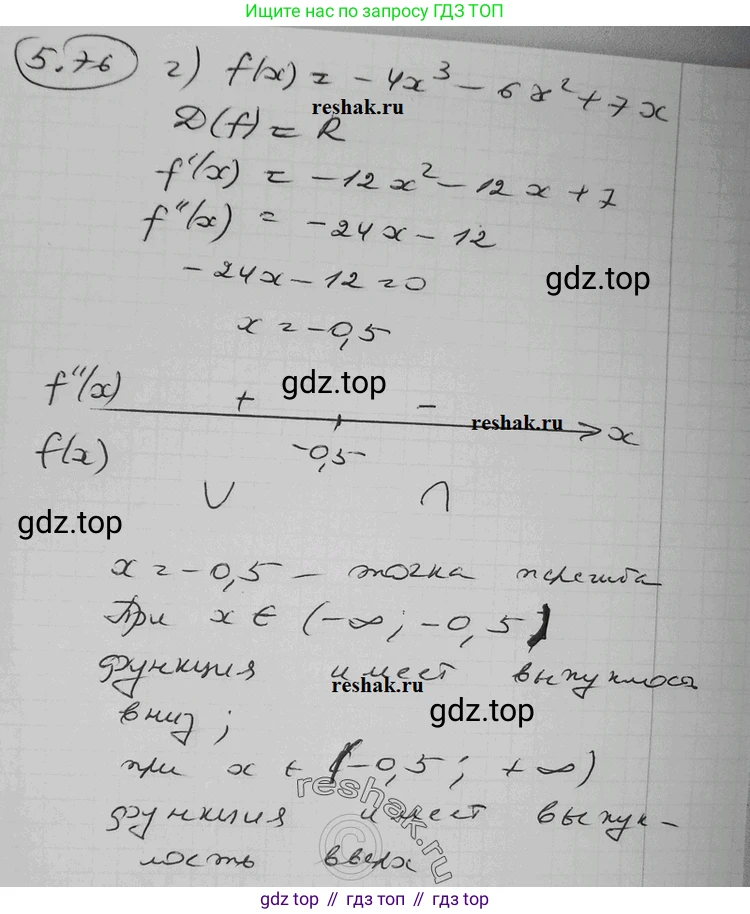 Ищите нас по запросу ГДЗ ТОП
5.76 г) f(x) = -4x³ - 6x² + 7x
reshak.ru
D(f) = R
f'(x) = -12x² - 12x + 7
f''(x) = -24x - 12
-24x - 12 = 0
gdz.top
x = -0,5
f''(x) + gdz.top -
reshak.ru x
f(x) -0,5
∪ ∩
gdz.top
x = -0,5 — точка перегиба
При x ∈ (-∞; -0,5)
функция имеет выпуклость
reshak.ru
вниз;
gdz.top
при x ∈ (-0,5; +∞)
reshak.ru
функция имеет выпук-
©
лость вверх
gdz.top // гдз топ // gdz.top // гдз топ